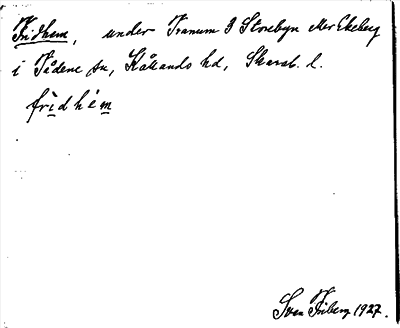 Fridhem, under Tranum 3 Storebyn eller Ekeberg
i Tådene sn, Kållands hd, Skarab. l.
fridhem
Sven Friberg 1927.